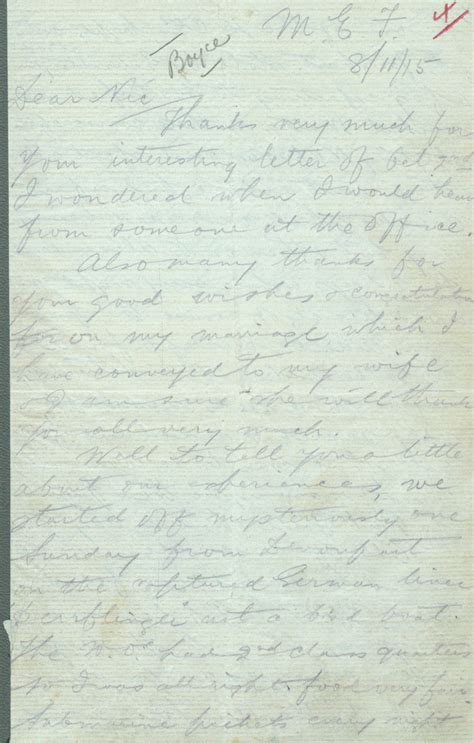 M E F. X
Boyce
8/11/15
Dear Nic
Thanks very much for
your interesting letter of Oct 2nd
I wondered when I would hear
from someone at the office.
Also many thanks for
your good wishes & congratulations
on my marriage which I
have conveyed to my wife
& I am sure she will thank
you all very much.
Well to tell you a little
about our experiences, we
started off mysteriously one
Sunday from Devonport
on the captured German liner
"Derfflinger" not a bad boat.
The N.Os had 2nd class quarters
so I was all right, food very fair
Submarine pickets every night